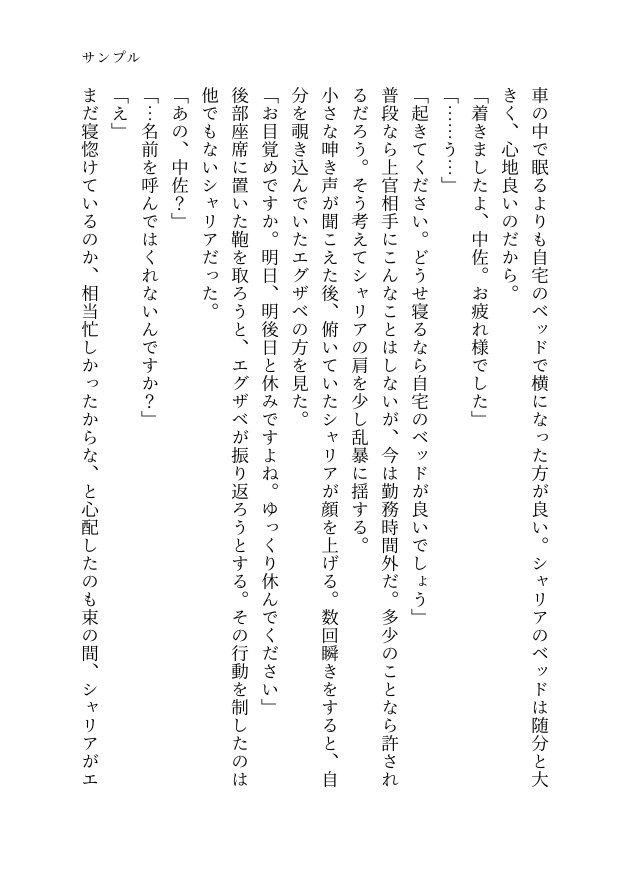 サンプル
車の中で眠るよりも自宅のベッドで横になった方が良い。シャリアのベッドは随分と大
きく、心地良いのだから。
「着きましたよ、中佐。お疲れ様でした」
「……う…」
「起きてください。どうせ寝るなら自宅のベッドが良いでしょう」
普段なら上官相手にこんなことはしないが、今は勤務時間外だ。多少のことなら許され
るだろう。そう考えてシャリアの肩を少し乱暴に揺する。
小さな呻き声が聞こえた後、俯いていたシャリアが顔を上げる。数回瞬きをすると、自
分を覗き込んでいたエグザベの方を見た。
「お目覚めですか。明日、明後日と休みですよね。ゆっくり休んでください」
後部座席に置いた鞄を取ろうと、エグザベが振り返ろうとする。その行動を制したのは
他でもないシャリアだった。
「あの、中佐？」
「…名前を呼んではくれないんですか？」
「え」
まだ寝惚けているのか、相当忙しかったからな、と心配したのも束の間、シャリアがエ